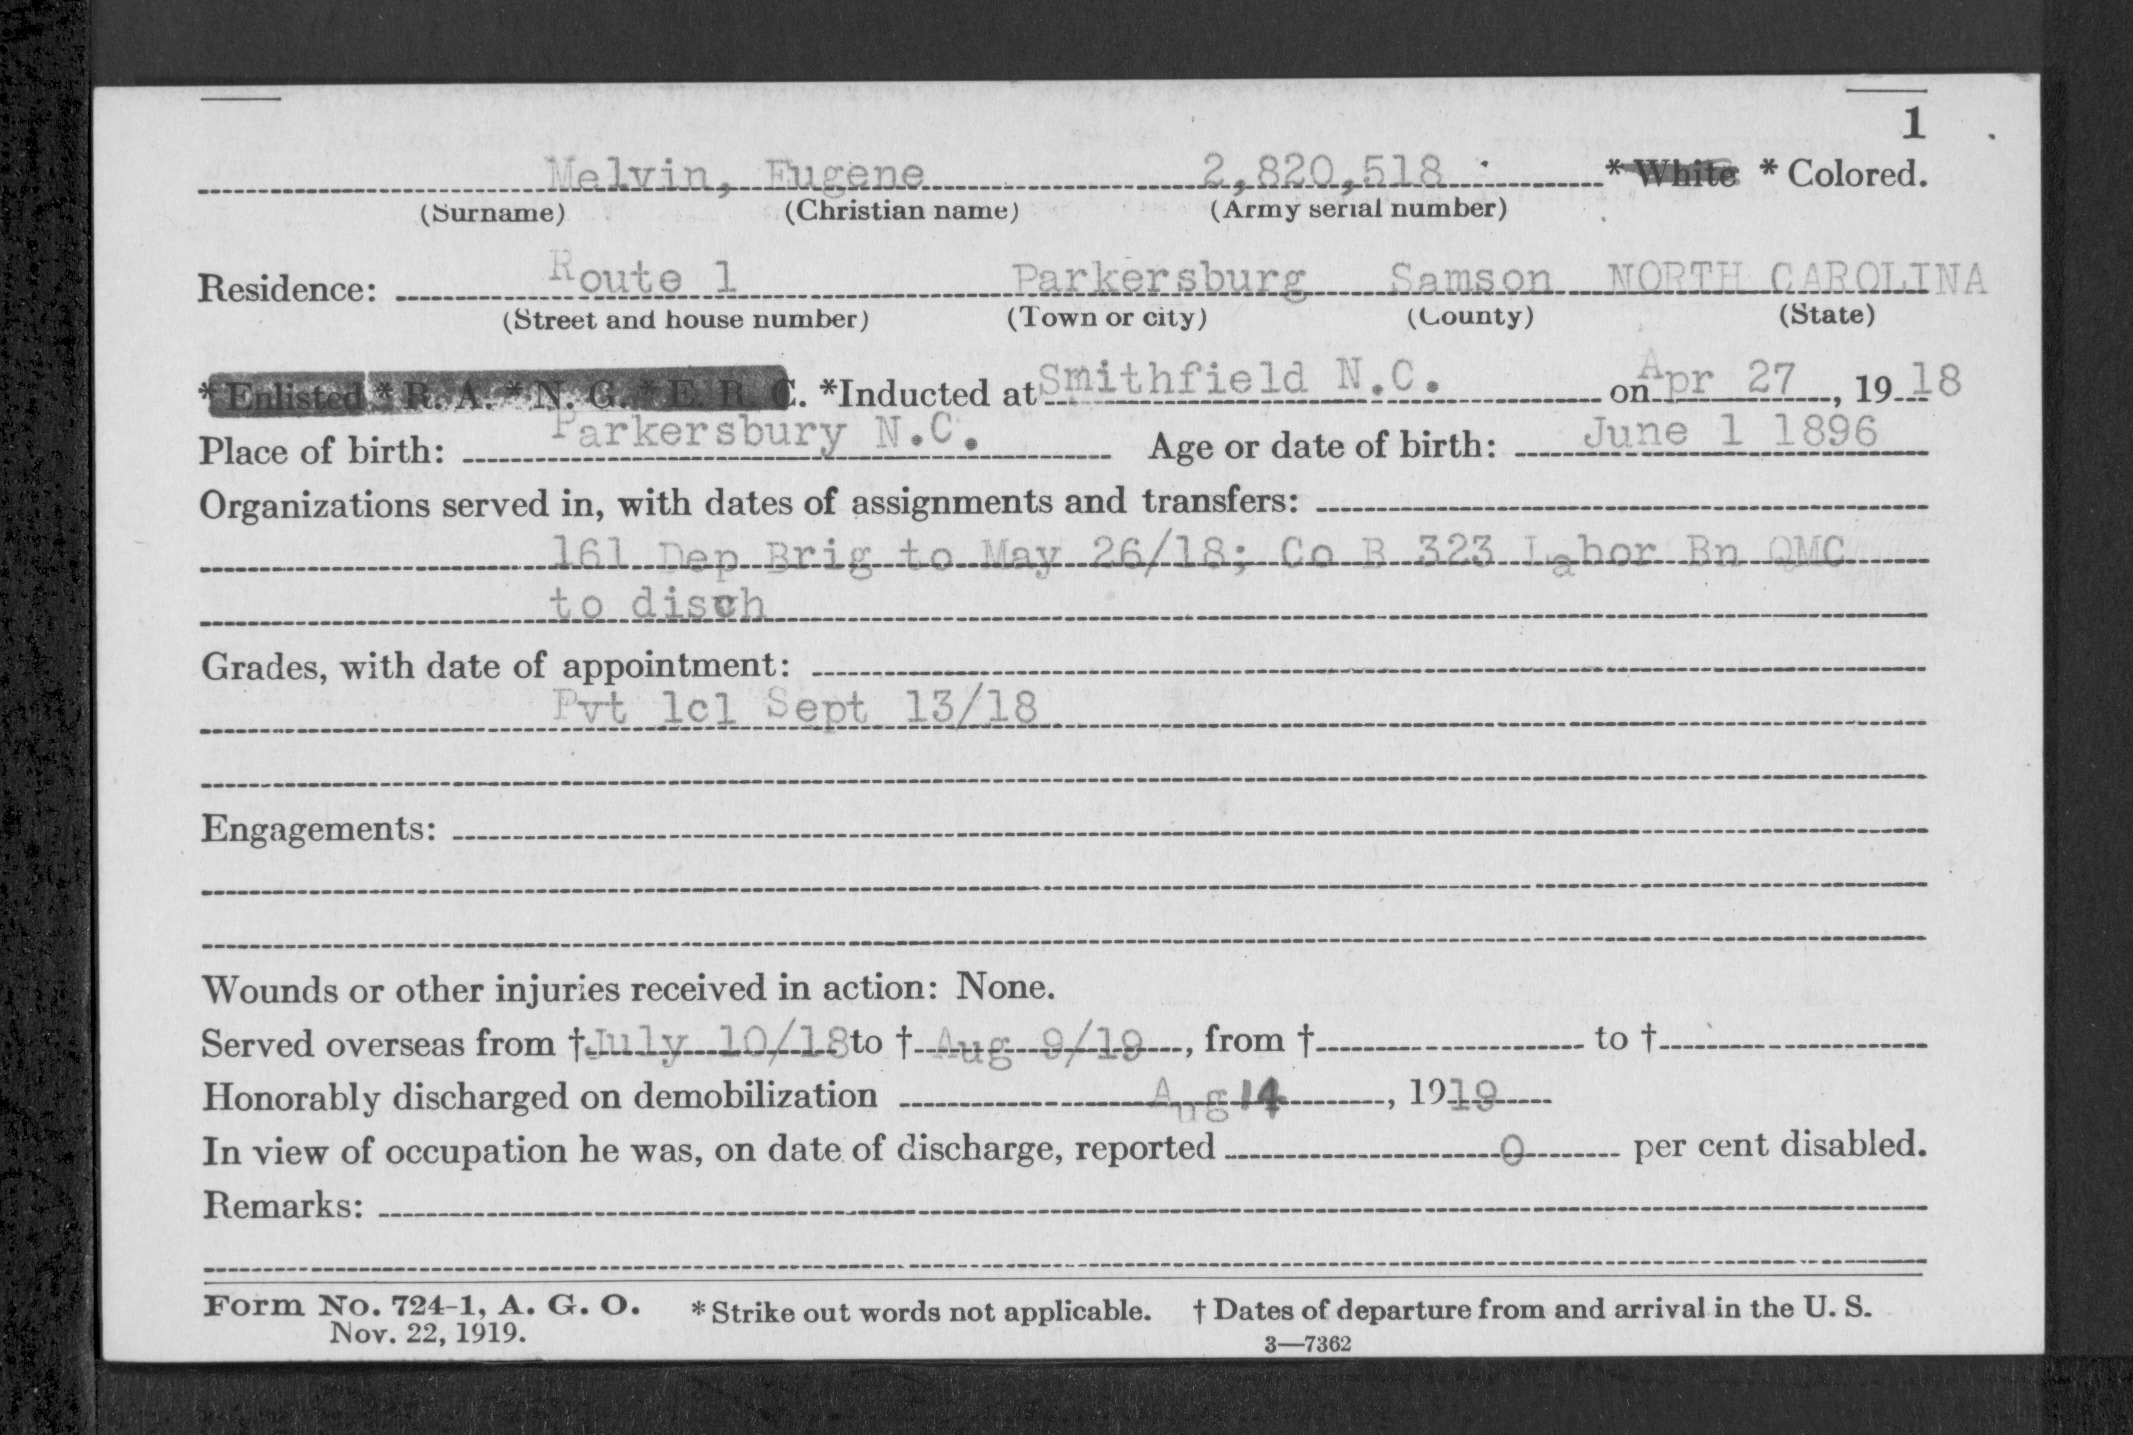 1
Melvin, Eugene 2,820,518 * White * Colored.
(Surname) (Christian name) (Army serial number)
Residence: Route 1 Parkersburg Samson NORTH CAROLINA
(Street and house number) (Town or city) (County) (State)
* Enlisted * R. A. * N. G. * E. R. C. *Inducted at Smithfield N.C. on Apr 27, 1918
Place of birth: Parkersbury N.C. Age or date of birth: June 1 1896
Organizations served in, with dates of assignments and transfers:
161 Dep Brig to May 26/18; Co B 323 Labor Bn QMC
to disch
Grades, with date of appointment:
Pvt 1cl Sept 13/18
Engagements:
Wounds or other injuries received in action: None.
Served overseas from † July 10/18 to † Aug 9/19, from † to †
Honorably discharged on demobilization Aug 14, 1919
In view of occupation he was, on date of discharge, reported 0 per cent disabled.
Remarks:
Form No. 724-1, A. G. O. * Strike out words not applicable. † Dates of departure from and arrival in the U. S.
Nov. 22, 1919. 3—7362